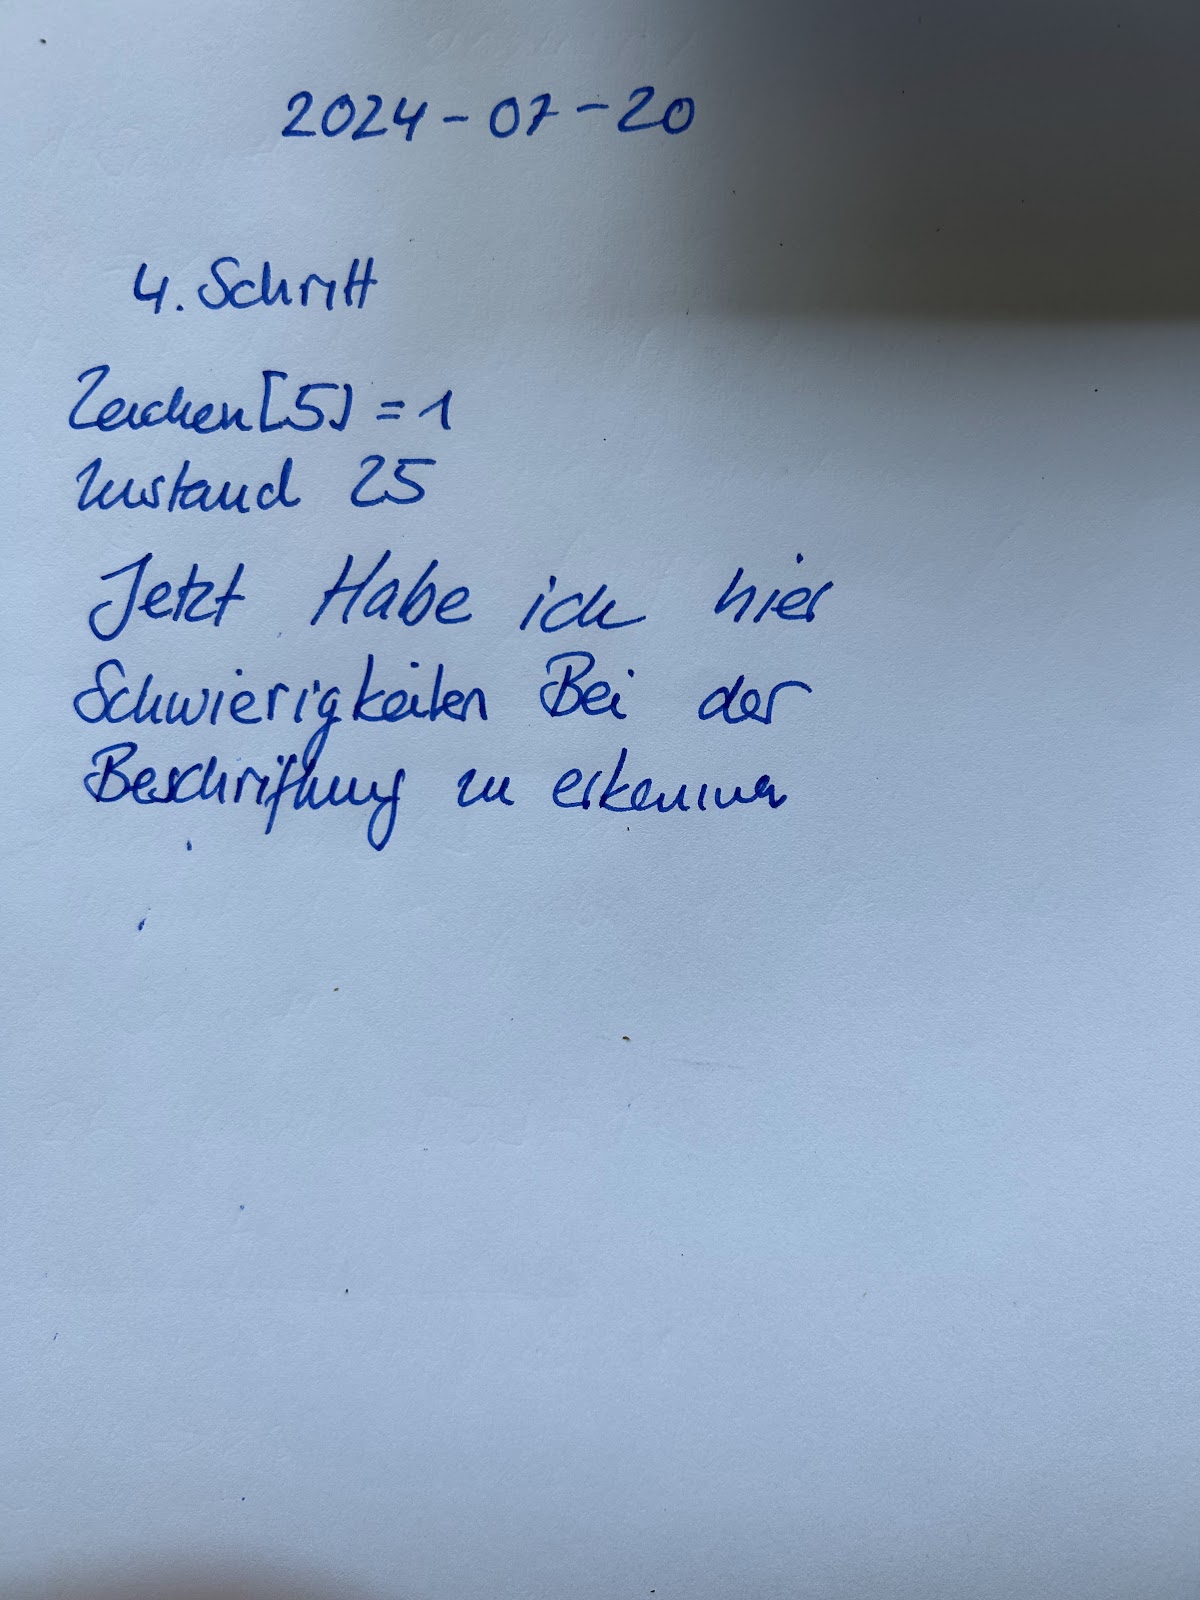 2024-07-20
4. Schritt
Zeichen[5] = 1
Zustand 25
Jetzt Habe ich hier
Schwierigkeiten Bei der
Beschriftung zu erkennen